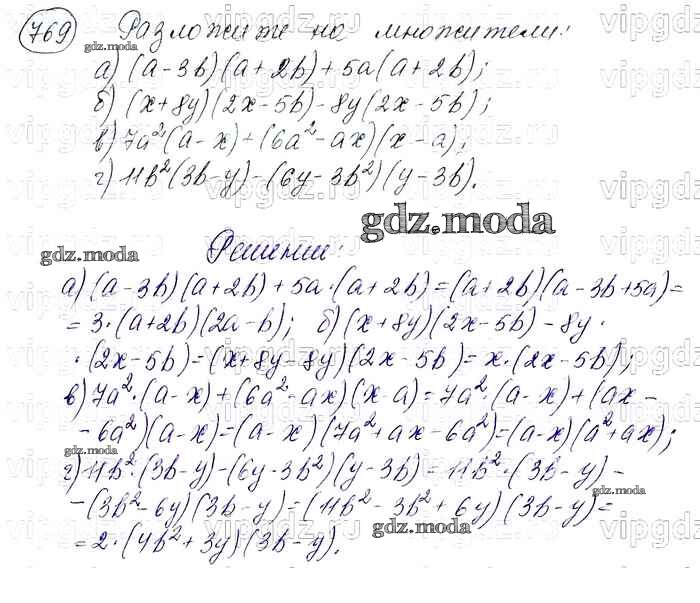 769 Разложите на множители:
а) (a-3b)(a+2b)+5a(a+2b);
б) (x+8y)(2x-5b)-8y(2x-5b);
в) 7a²(a-x)+(6a²-ax)(x-a);
г) 11b²(3b-y)-(6y-3b²)(y-3b).
Решение:
а) (a-3b)(a+2b)+5a·(a+2b)=(a+2b)(a-3b+5a)=
=3·(a+2b)(2a-b); б) (x+8y)(2x-5b)-8y·
·(2x-5b)=(x+8y-8y)(2x-5b)=x·(2x-5b);
в) 7a²·(a-x)+(6a²-ax)(x-a)=7a²·(a-x)+(ax-
-6a²)(a-x)=(a-x)(7a²+ax-6a²)=(a-x)(a²+ax);
г) 11b²·(3b-y)-(6y-3b²)(y-3b)=11b²·(3b-y)-
-(3b²-6y)(3b-y)=(11b²-3b²+6y)(3b-y)=
=2·(4b²+3y)(3b-y).
gdz.moda
gdz.moda
gdz.moda
gdz.moda
gdz.moda
gdz.moda
vipgdz.ru